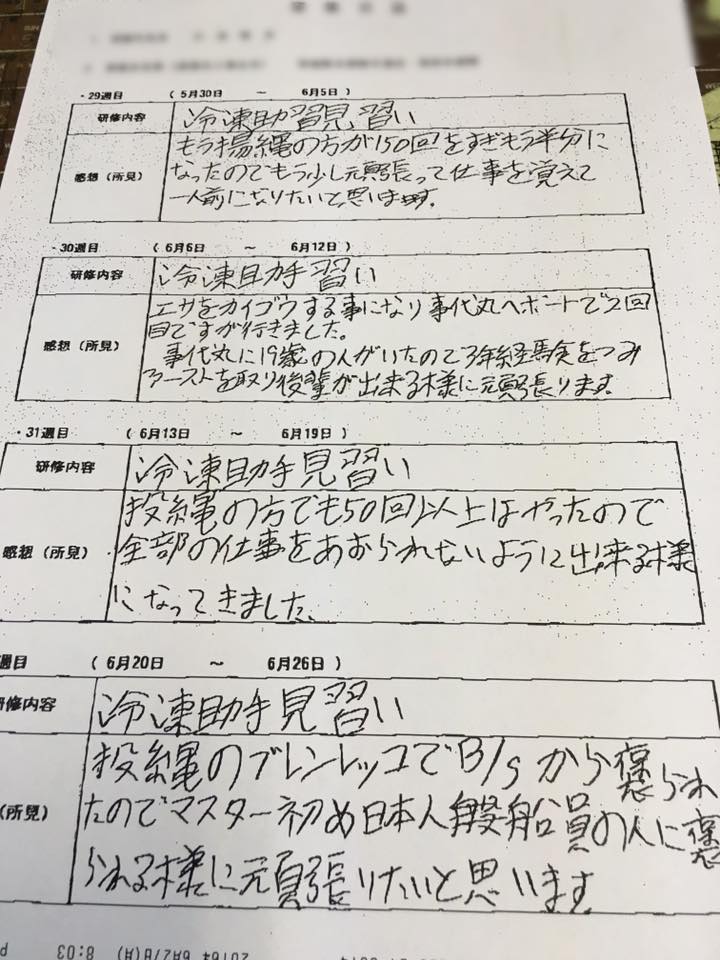 ・29週目 ( 5月30日 ～ 6月5日 )
研修内容 冷凍助習見習い
感想（所見） もう揚縄の方が150回をすぎもう半分に
なったのでもう少し元頑張って仕事を覚えて
一人前になりたいと思います。
・30週目 ( 6月6日 ～ 6月12日 )
研修内容 冷凍助手習い
感想（所見） エサをカイゴウする事になり事代丸へボートで2回
目ですが行きました。
事代丸に19歳の人がいたので3年経験をつみ
ファーストを取り後輩が出来る様に元頑張ります
・31週目 ( 6月13日 ～ 6月19日 )
研修内容 冷凍助手見習い
感想（所見） 投縄の方でも50回以上はやったので
全部の仕事をあおられないように出来る様
になってきました、
週目 ( 6月20日 ～ 6月26日 )
研修内容 冷凍助手見習い
（所見） 投縄のブレンレッコでB/sから褒られ
たのでマスター初め日本人般船員の人に褒
られる様に元頑張りたいと思います
8:03